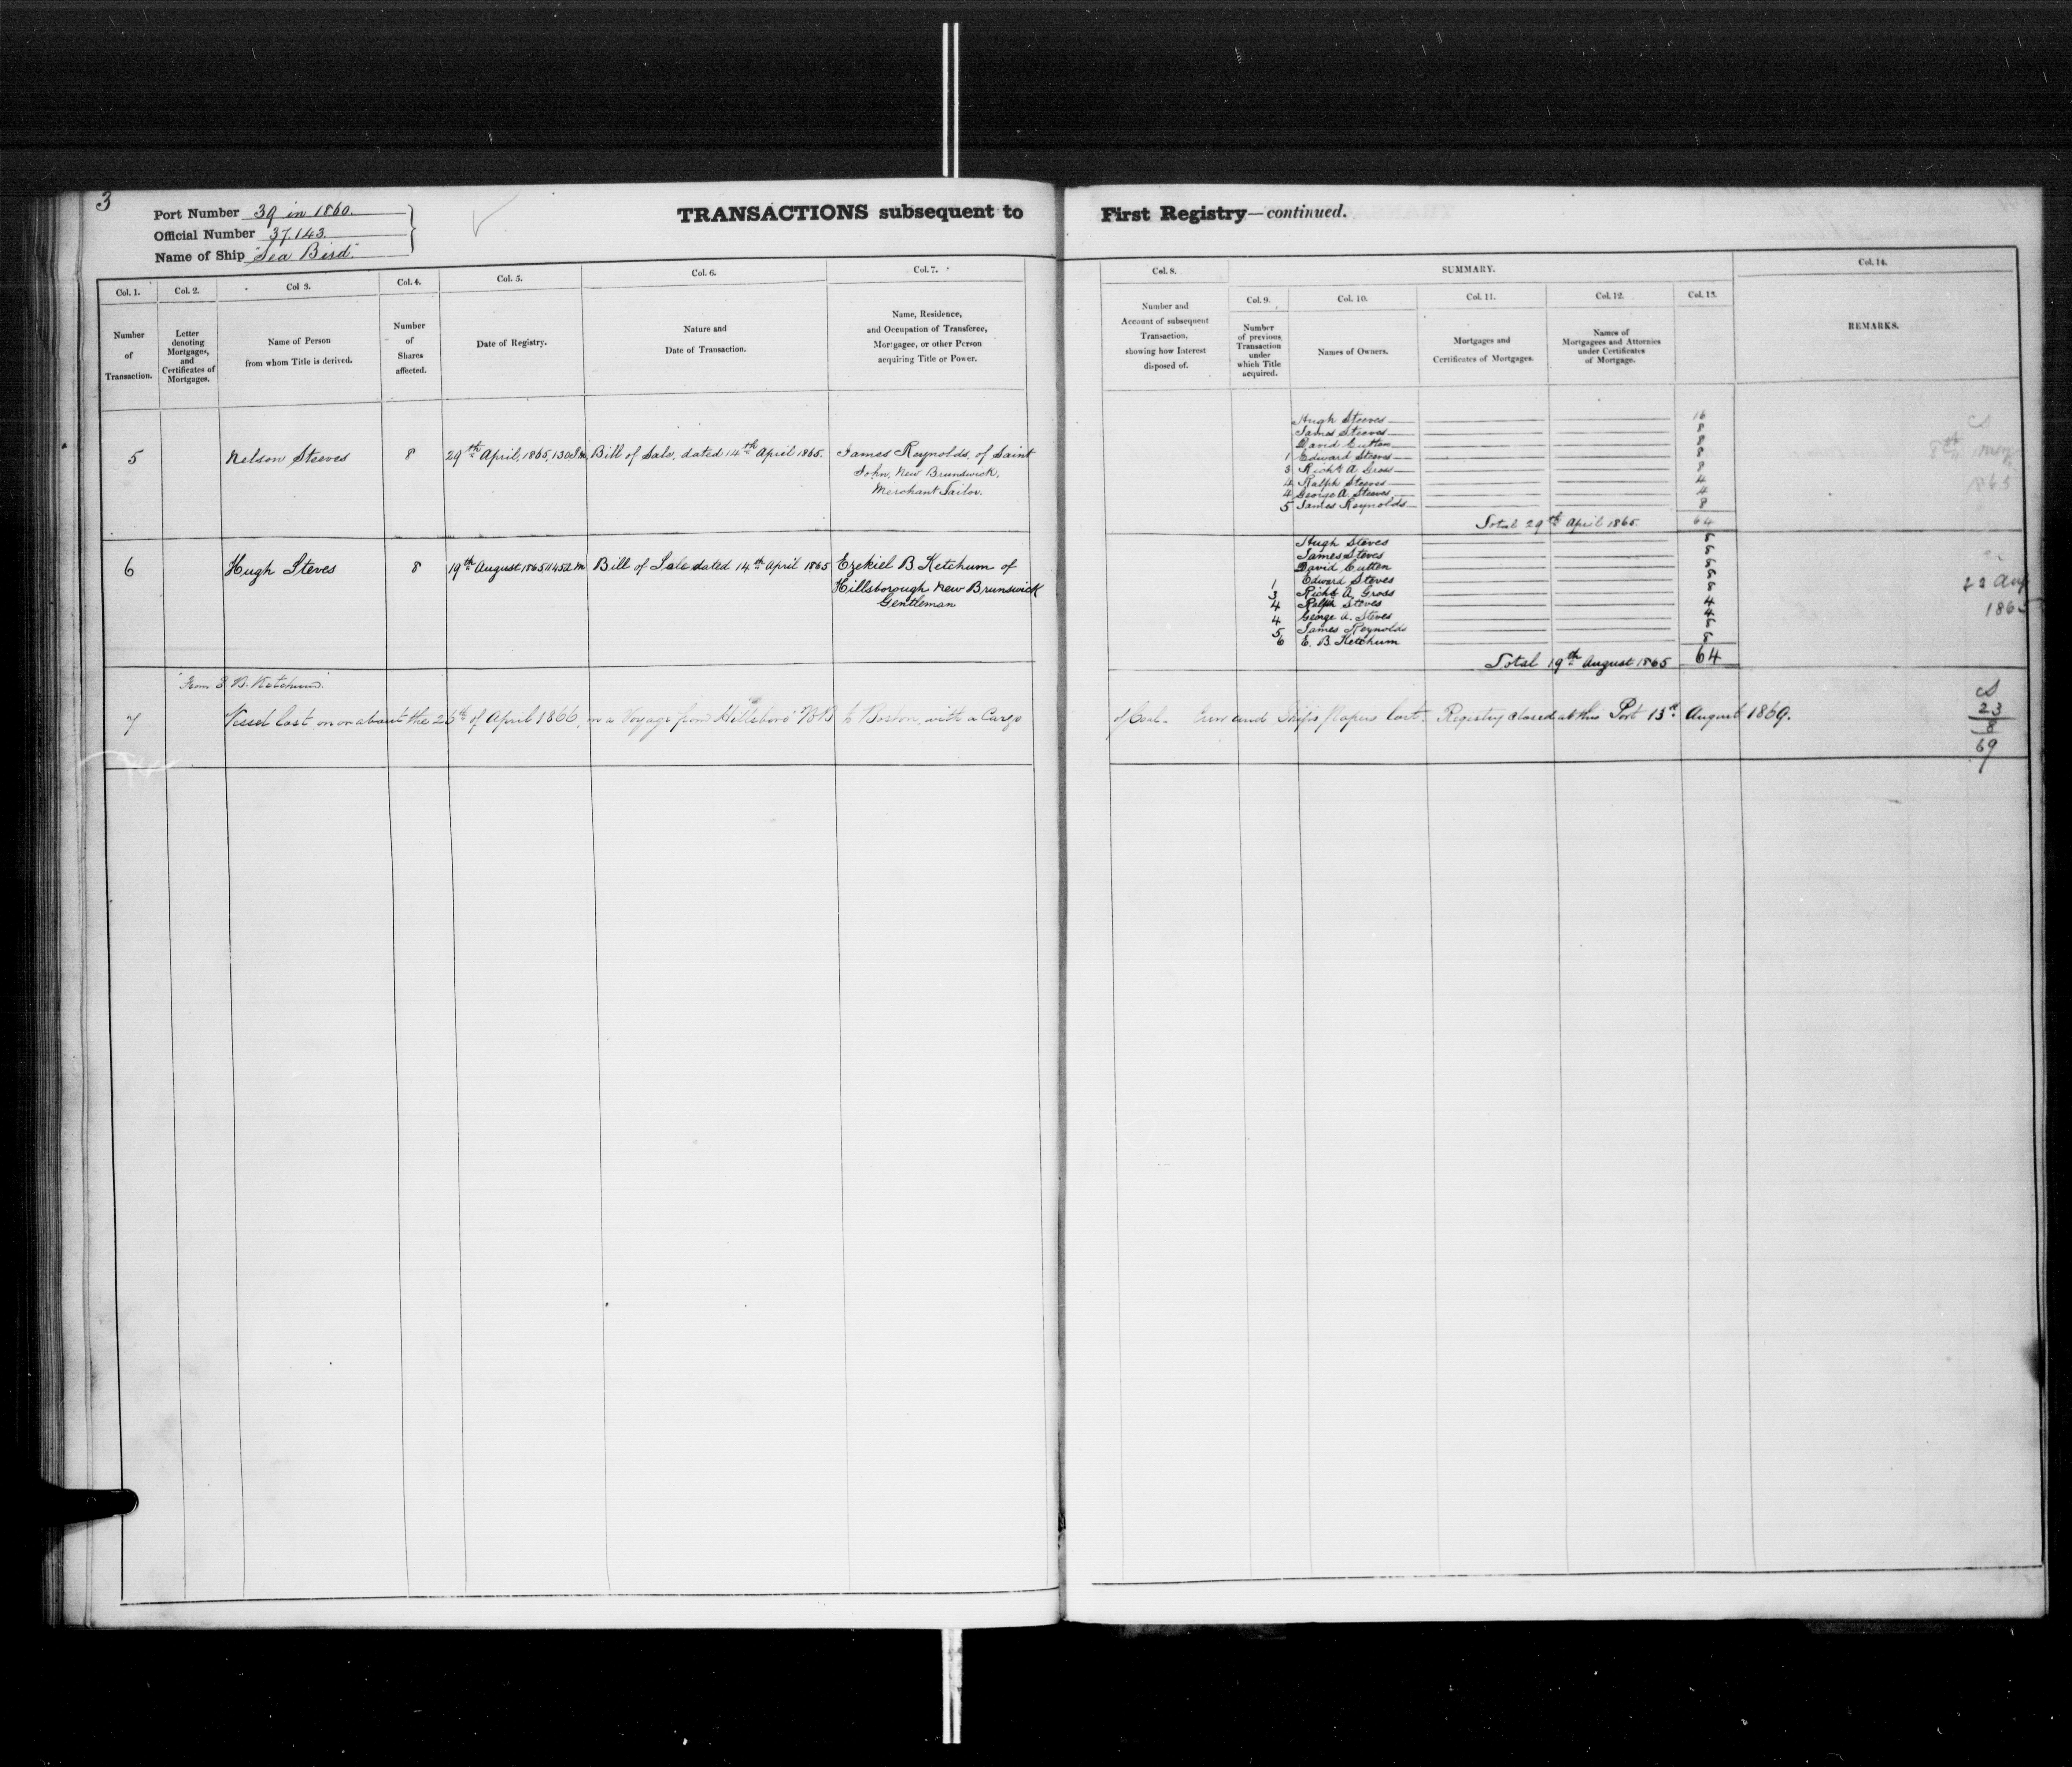 3
Port Number 39 in 1860.
Official Number 37.143.
Name of Ship "Sea Bird"
TRANSACTIONS subsequent to First Registry—continued.
Col. 1.
Number of Transaction.
Col. 2.
Letter denoting Mortgages, and Certificates of Mortgages.
Col 3.
Name of Person from whom Title is derived.
Col. 4.
Number of Shares affected.
Col. 5.
Date of Registry.
Col. 6.
Nature and Date of Transaction.
Col. 7.
Name, Residence, and Occupation of Transferee, Mortgagee, or other Person acquiring Title or Power.
Col. 8.
Number and Account of subsequent Transaction, showing how Interest disposed of.
SUMMARY.
Col. 9.
Number of previous Transaction under which Title acquired.
Col. 10.
Names of Owners.
Col. 11.
Mortgages and Certificates of Mortgages.
Col. 12.
Names of Mortgagees and Attornies under Certificates of Mortgage.
Col. 13.
Col. 14.
REMARKS.
5 Nelson Steeves 8 29th April, 1865, 1 30 P.M. Bill of Sale, dated 14th April 1865. James Reynolds, of Saint
John, New Brunswick,
Merchant Tailor.
Hugh Steeves 16
James Steeves 8
David Cutten 8
1 Edward Steeves 8
3 Richd A Gross 8
4 Ralph Steeves 4
4 George A. Steeves 4
5 James Reynolds 8
Total 29th April 1865. 64
8th May
1865
6 Hugh Steves 8 19th August 1865 11 45 A M Bill of Sale dated 14th April 1865 Ezekiel B. Ketchum of
Hillsborough New Brunswick
Gentleman
Hugh Steves 8
James Steves 8
David Cutten 8
1 Edward Steves 8
3 Richd A. Gross 8
4 Ralph Steves 4
4 George A. Steves 4
5 James Reynolds 8
6 E. B. Ketchum 8
Total 19th August 1865 64
22 Aug
1865
"From B. Ketchum"
7 Vessel lost on or about the 26th of April 1866, on a Voyage from Hillsboro' NB to Boston, with a Cargo
of Coal - Crew and Ship's papers lost. Registry closed at this Port 13th August 1869.
23
8
69